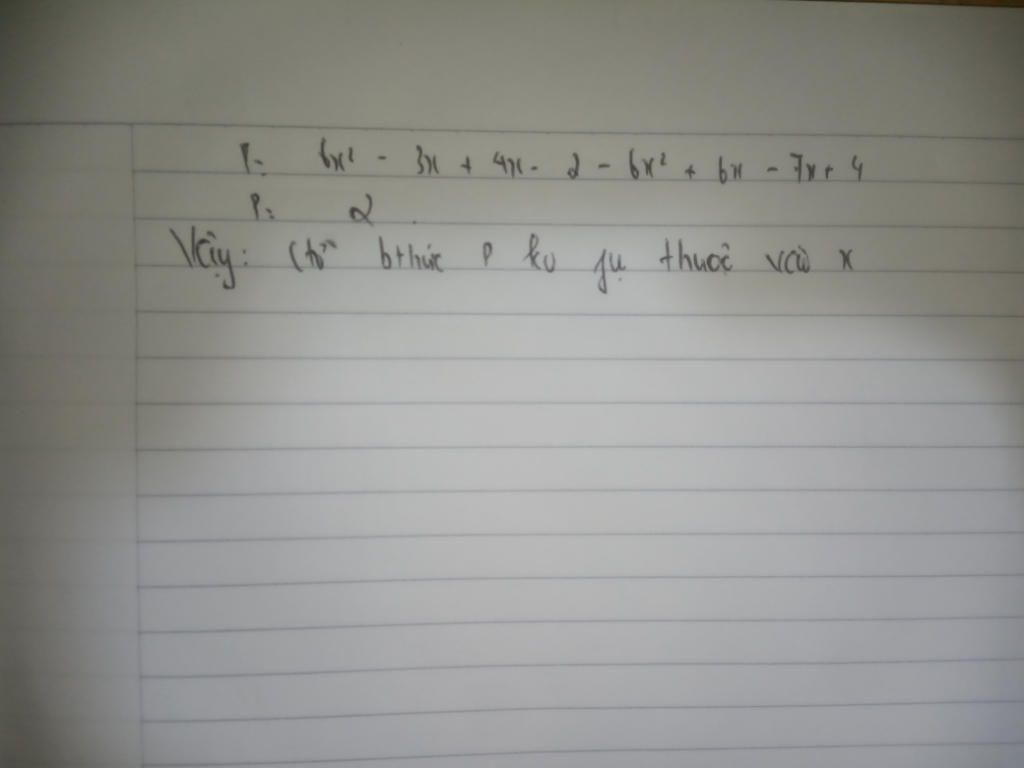 P= 6x² - 3x + 4x - 2 - 6x² + 6x - 7x + 4
P= 2.
Vậy: bthức P ko thuộc vào x